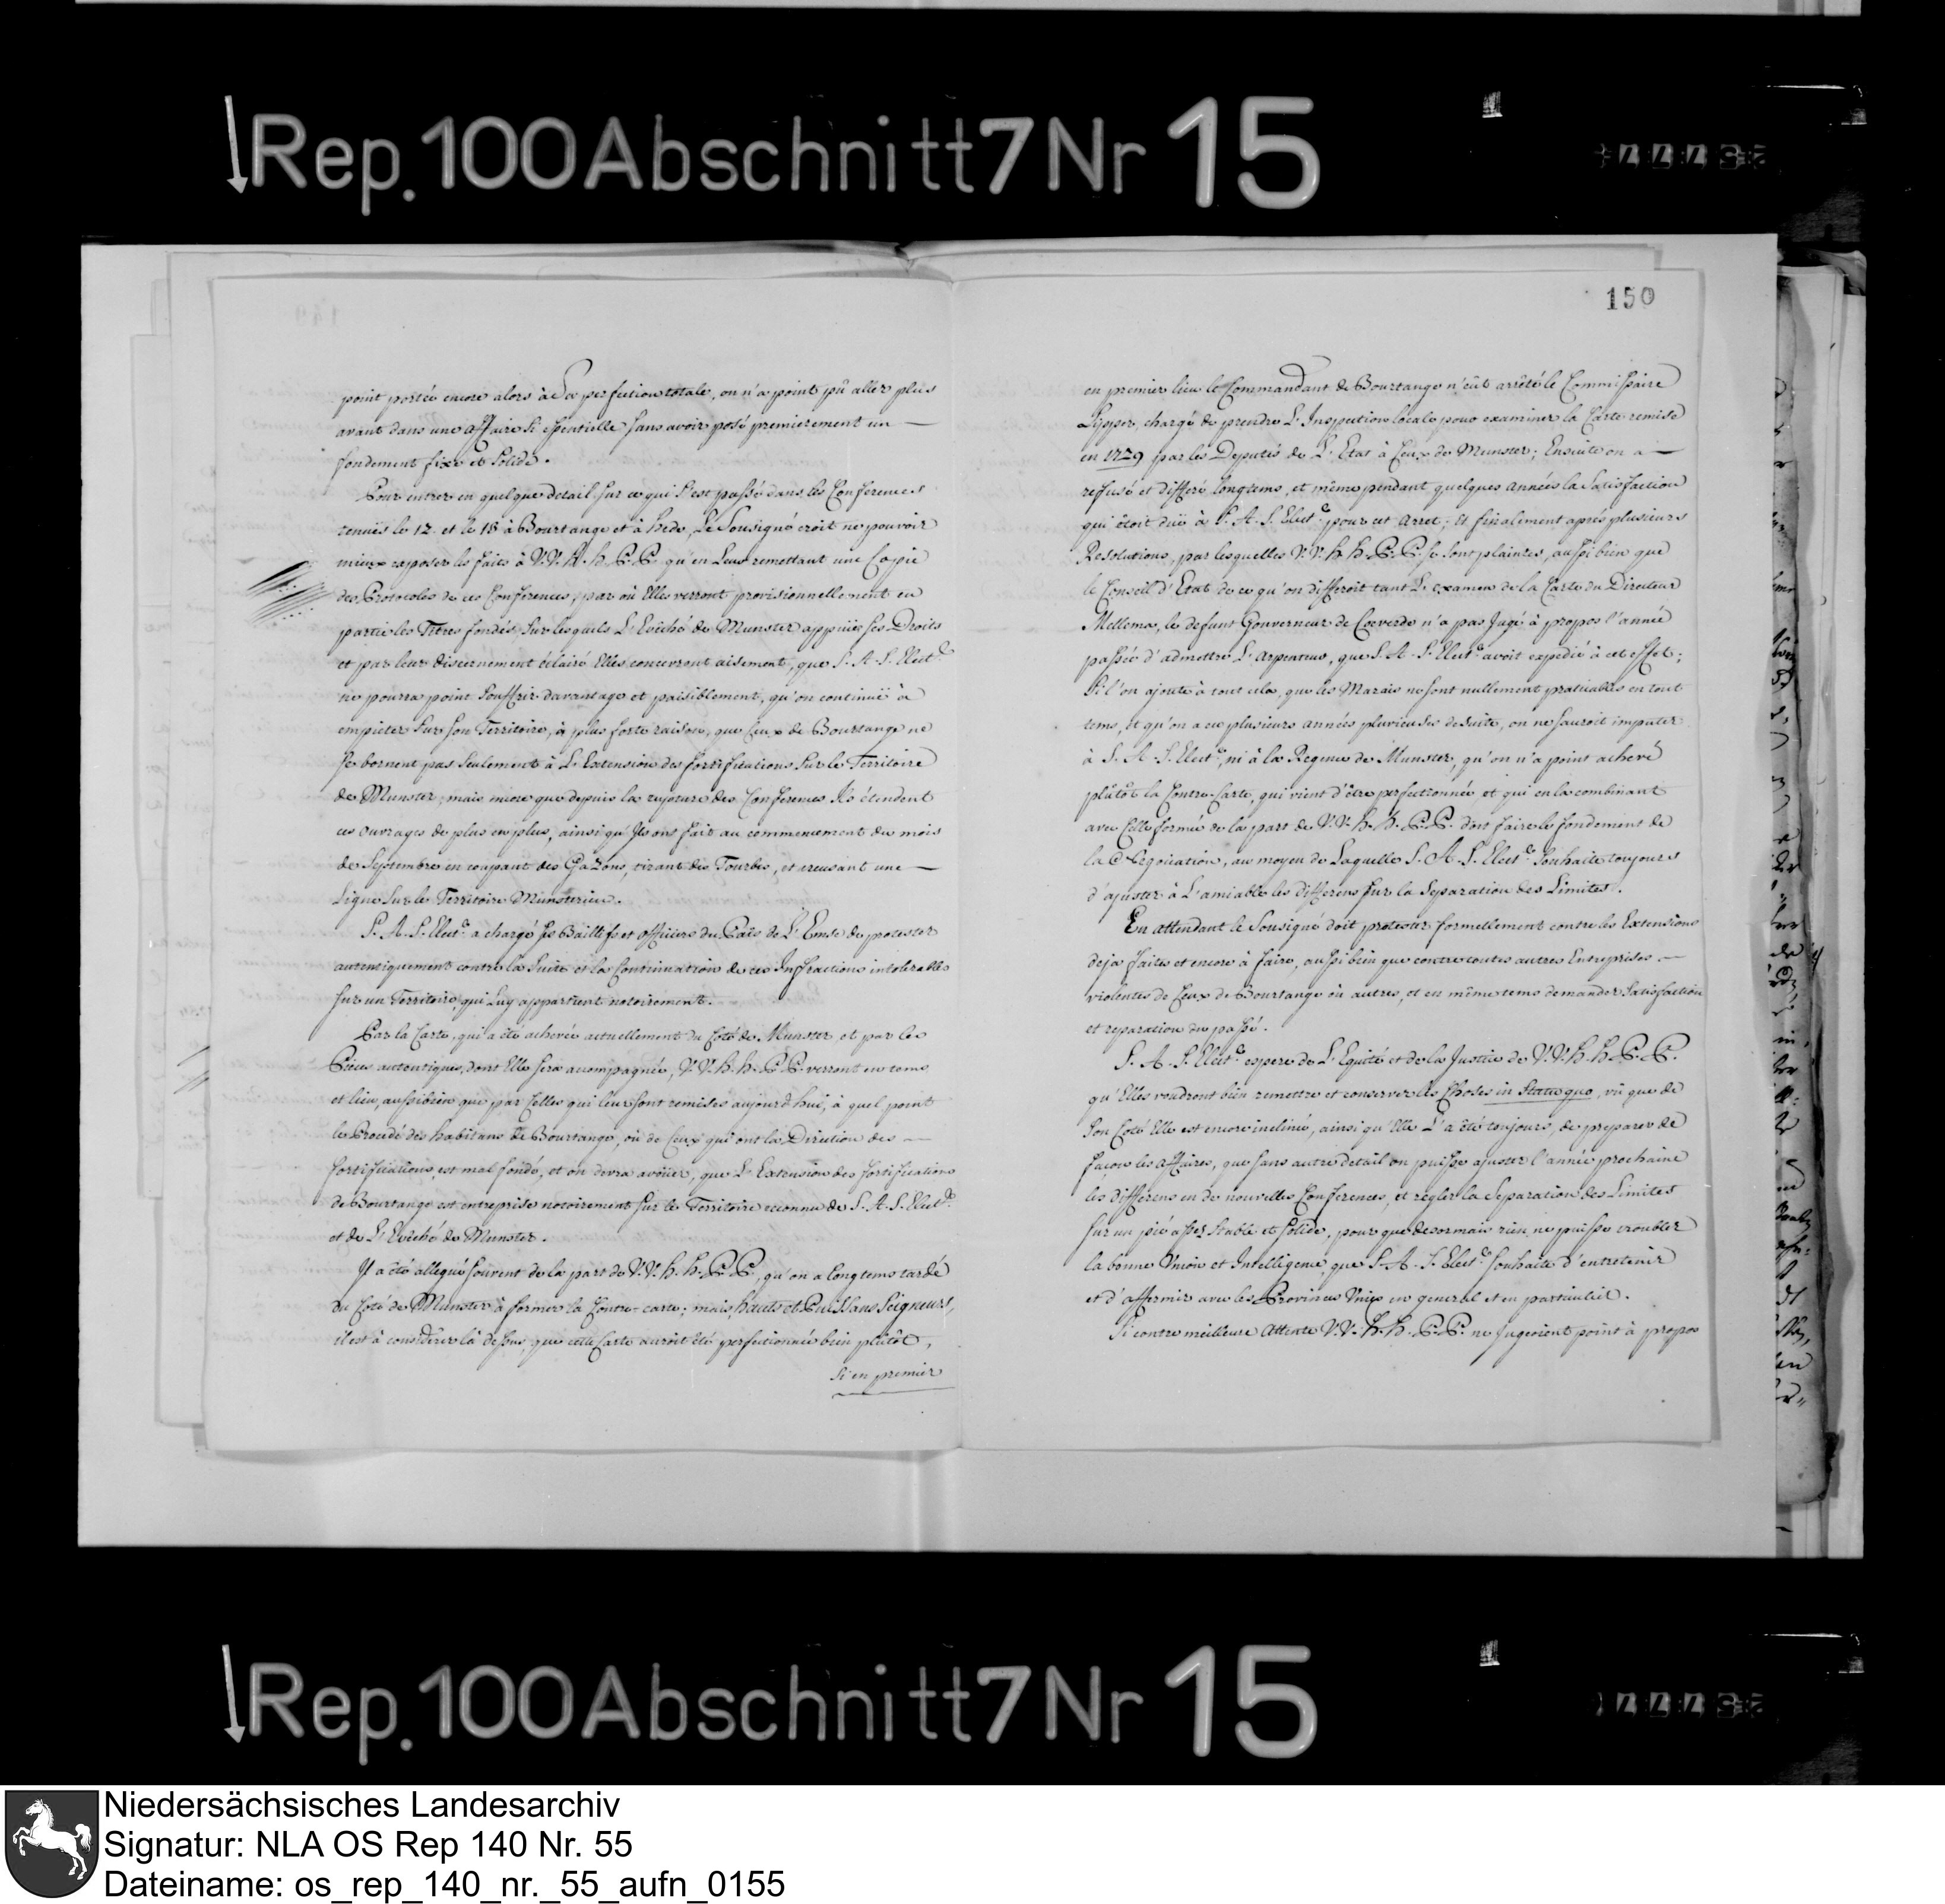 Rep. 100 Abschnitt 7 Nr 15
150
point portée encore alors à Sa perfection totale, on n'a point pû aller plus
avant dans une affaire Si essentielle Sans avoir posé premierement un —
fondement fixe et Solide.
Pour entrer en quelque detail Sur ce qui S'est passé dans les Conferences
tenuës le 12. et le 18 à Bourtange et à hede, Le Sousigné croit ne pouvoir
mieux exposer les faits à V.V. H. h. P. P. qu'en Leur remettant une Copie
des Protocoles de ces Conferences, par où Elles verront provisionnellement en
partie les Titres fondés Sur lesquels L'Evêché de Munster appuïe Ses Droits
et par leur discernement éclairé Elles concevront aisement, que S. A. S. Elect.e
ne pourra point Souffrir davantage et paisiblement, qu'on continuë à
empieter Sur Son Territoire, à plus forte raison, que Ceux de Bourtange ne
Se bornent pas Seulement à L'Extension des fortifications Sur le Territoire
de Munster, mais encore que depuis la rupture des Conferences Ils étendent
ces ouvrages de plus en plus, ainsi qu'Ils ont fait au commencement du mois
de Septembre en coupant des Gazons, tirant des Tourbes, et creusant une —
Ligne Sur le Territoire Munsterien.
S. A. S. Elect.e a chargé Ses Baillifs et officiers du Païs de L'Emse de protester
autentiquement contre la Suite et la Continuation de ces Infractions intolerables
Sur un Territoire, qui Luy appartient notoirement.
Par la Carte, qui a été achevée actuellement du Coté de Munster, et par les
Pieces autentiques, dont Elle Sera acompagnée, V. V. h. h. P. P. verront en tems
et lieu, aussi bien que par Celles qui leur Sont remises aujourd'hui, à quel point
le Procedé des habitans de Bourtange, où de Ceux qui ont la Direction des —
fortifications, est mal fondé, et on devra avoüer, que L'Extension des fortifications
de Bourtange est entreprise notoirement Sur le Territoire reconnu de S. A. S. Elect.e
et de L'Evêché de Munster.
Il a été allegué Souvent de la part de V. V. h. h. P. P., qu'on a longtems tardé
du Coté de Munster à former la Contre-carte; mais, hauts et Puissans Seigneurs,
il est à considerer là dessus, que cette Carte auroit été perfectionnée bien plûtôt,
Si en premier
en premier lieu le Commandant de Bourtange n'eût arrêté le Commissaire
chargé de prendre L'Inspection locale pour examiner la Carte remise
en 1729 par les Deputés de L'Etat à Ceux de Munster; Ensuite on a —
refusé et differé longtems, et même pendant quelques années la Satisfaction
qui étoit duë à S. A. S. Elect.e pour cet arret; Et finalement aprés plusieurs
Resolutions, par lesquelles V. V. h. h. P. P. Se Sont plaintes, aussi bien que
le Conseil d'Etat de ce qu'on differoit tant L'examen de la Carte du Directeur
Mellema, le defunt Gouverneur de Coeverde n'a pas Jugé à propos l'année
passée d'admettre L'arpenteur, que S. A. S. Elect.e avoit expedié à cet effet;
Si l'on ajoute à tout cela, que les Marais ne Sont nullement praticables en tout
tems, et qu'on a eu plusieurs années pluvieuses de Suite, on ne Sauroit imputer
à S. A. S. Elect.e, ni à la Regence de Munster, qu'on n'a point achevé
plûtôt la Contre-Carte, qui vient d'être perfectionnée et qui en la combinant
avec Celle formée de la part de V. V. h. h. P. P. doit faire le fondement de
la Negotiation, au moyen de Laquelle S. A. S. Elect.e Souhaite toujours
d'ajuster à L'amiable les differens Sur la Separation des Limites.
En attendant le Sousigné doit protester formellement contre les Extensions
deja faites et encore à faire, aussi bien que contre toutes autres Entreprises —
violentes de Ceux de Bourtange où autres, et en même tems demander Satisfaction
et reparation du passé.
S. A. S. Elect.e espere de L'Equité et de la Justice de V. V. h. h. P. P.
qu'Elles voudront bien remettre et conserver les Choses in Statu quo, vû que de
Son Coté Elle est encore inclinée, ainsi qu'Elle L'a été toujours, de preparer de
facon les affaires, que Sans autre detail on puisse ajuster l'année prochaine
les differens en de nouvelles Conferences, et regler la Separation des Limites
Sur un pié assez Stable et Solide, pour que desormais rien ne puisse troubler
la bonne Union et Intelligence, que S. A. S. Elect.e Souhaite d'entretenir
et d'affermir avec les Provinces Unies en general et en particulier.
Si contre meilleure Attente V. V. h. h. P. P. ne Jugeoient point à propos
Rep. 100 Abschnitt 7 Nr 15
Niedersächsisches Landesarchiv
Signatur: NLA OS Rep 140 Nr. 55
Dateiname: os_rep_140_nr._55_aufn_0155